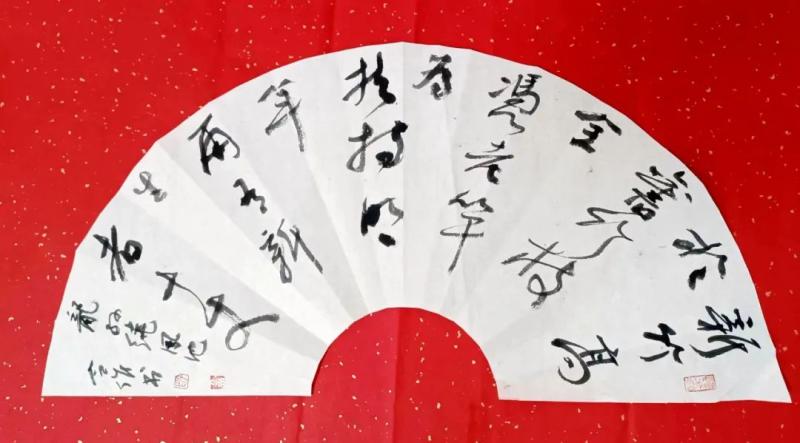 新竹高
於
舊竹枝
全
憑老竿
為
扶持明
年
再有新
生
者十丈
龍孫繞凤池
书